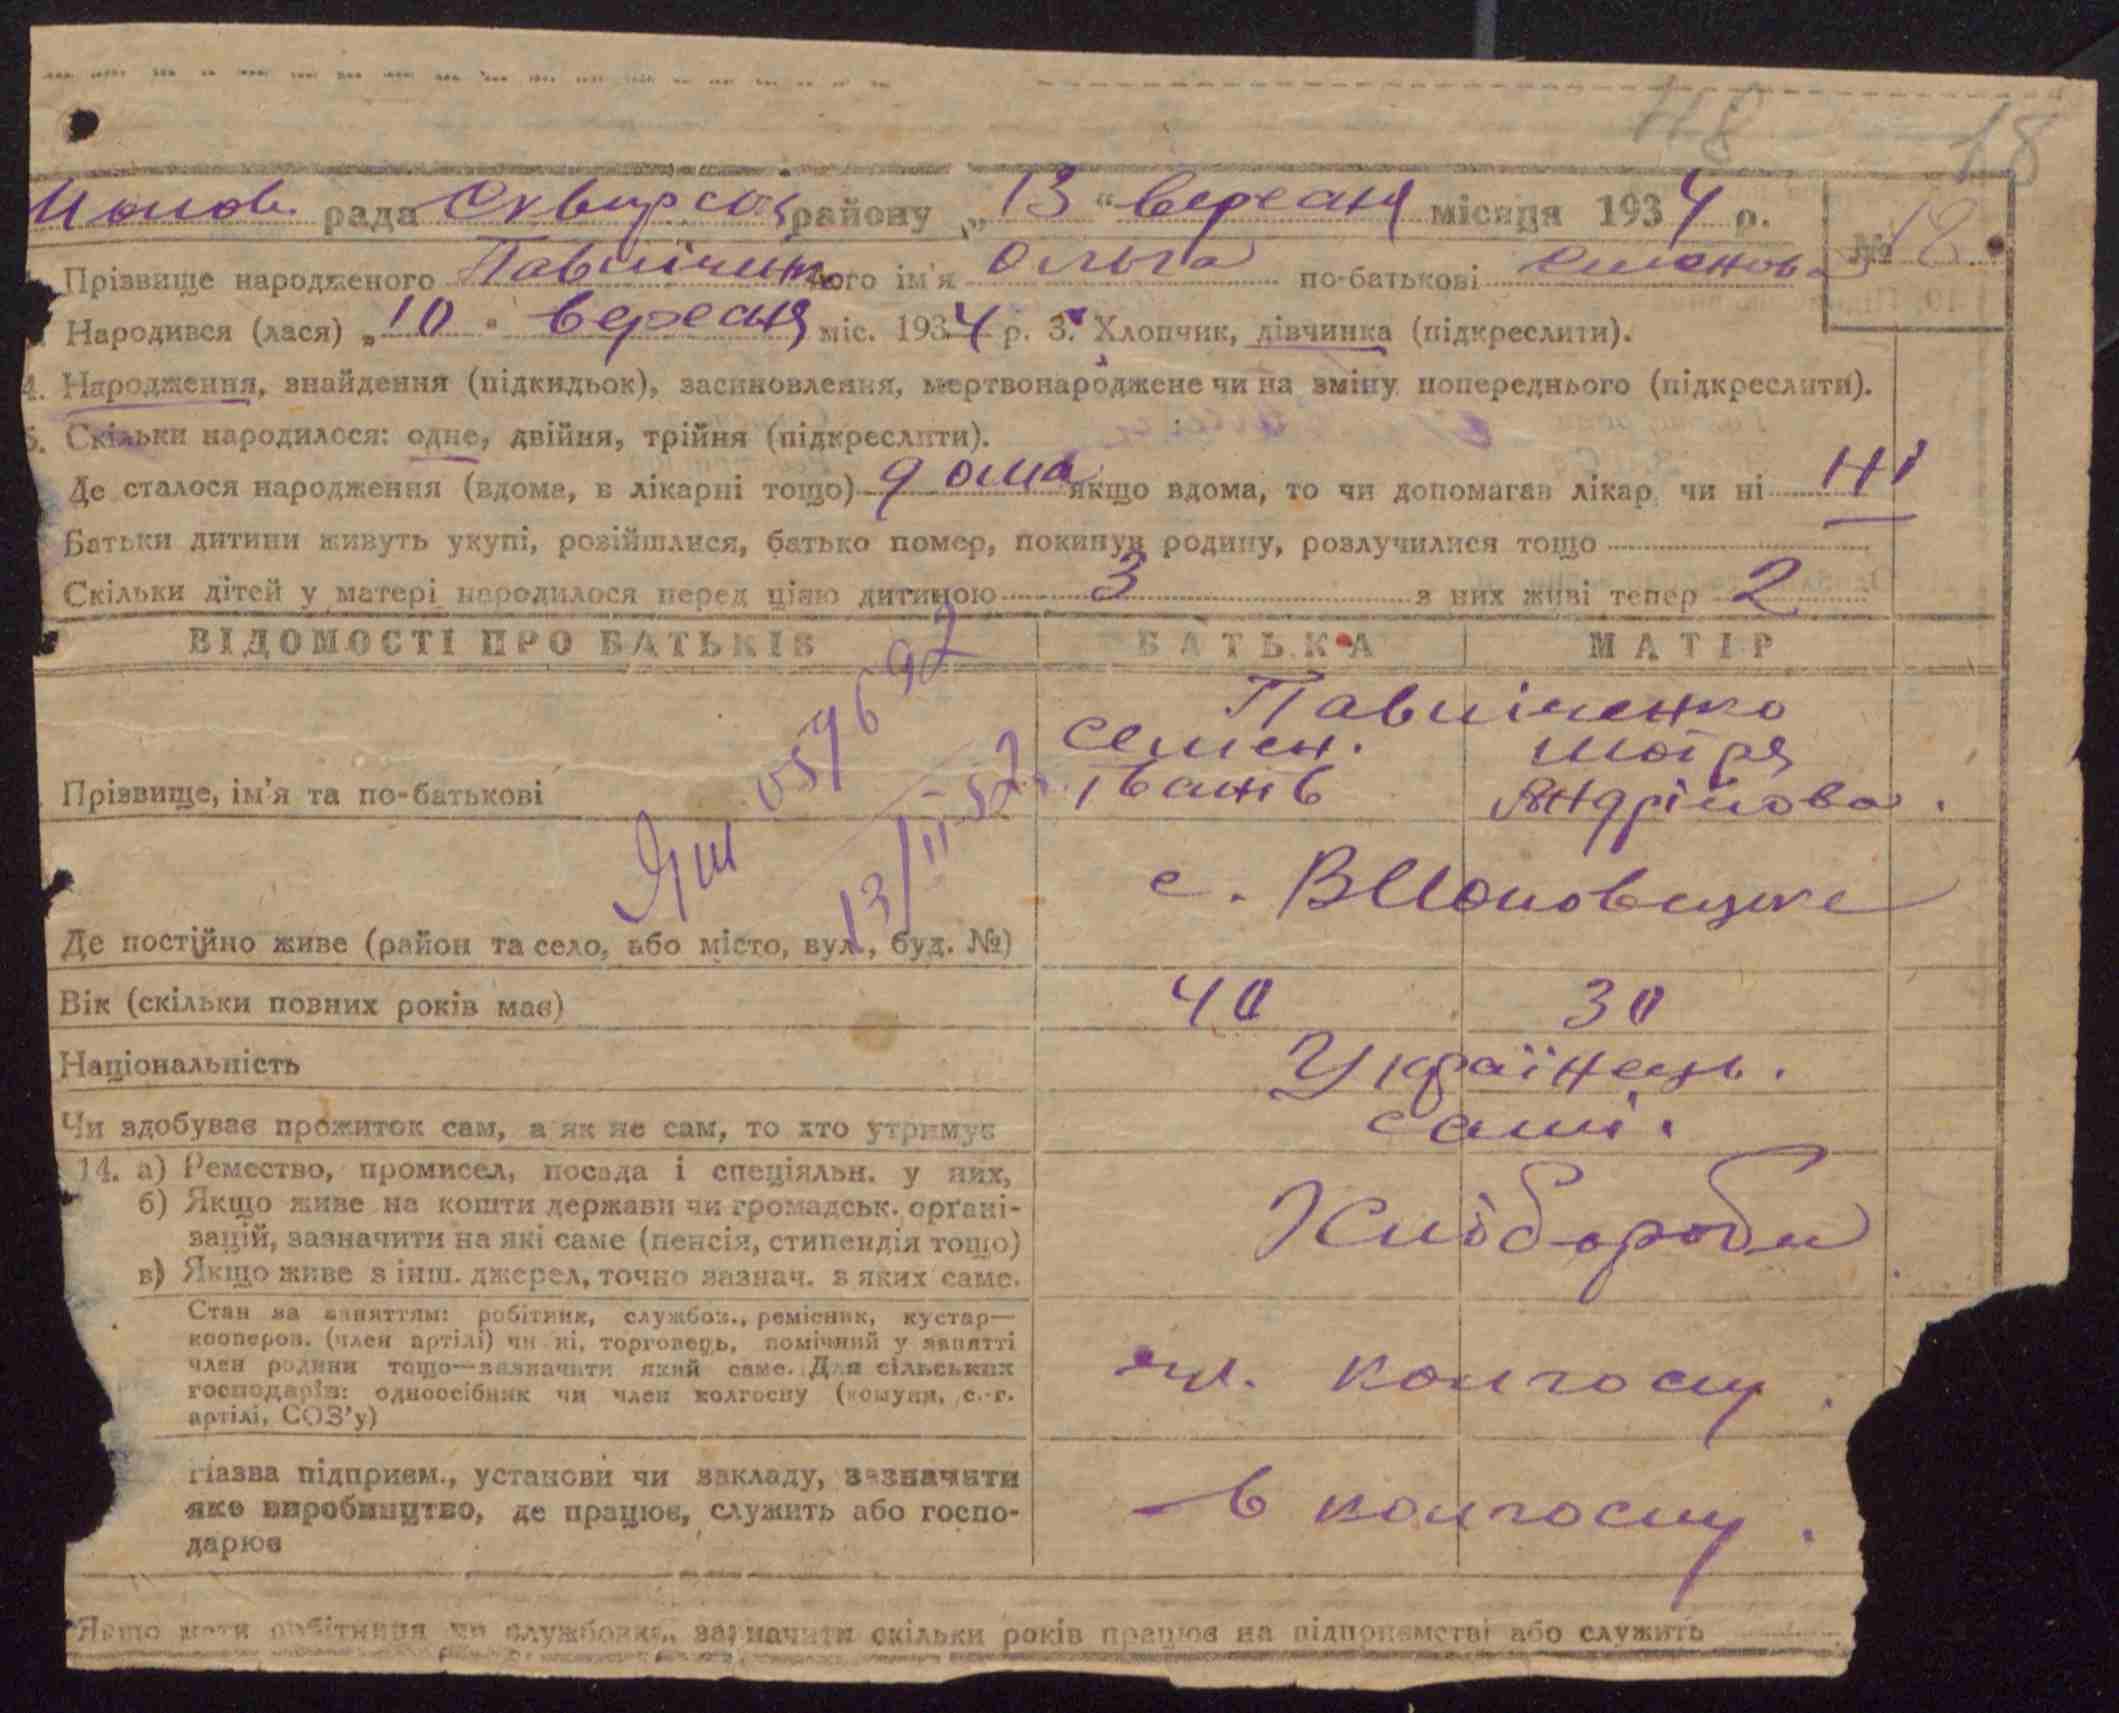 118 18
рада Сквирськ району „13“ вересня місяця 1934 р.
№ 18
Прізвище народженого його ім'я Ольга по-батькові Семенова
Народився (лася) „10“ вересня міс. 1934 р. 3. Хлопчик, дівчинка (підкреслити).
4. Народження, знайдення (підкидьок), засиновлення, мертвонароджене чи на зміну попереднього (підкреслити).
5. Скільки народилося: одне, двійня, трійня (підкреслити).
Де сталося народження (вдома, в лікарні тощо) дома якщо вдома, то чи допомагав лікар чи ні ні
Батьки дитини живуть укупі, розійшлися, батько помер, покинув родину, розлучилися тощо
Скільки дітей у матері народилося перед цією дитиною 3 з них живі тепер 2
ВІДОМОСТІ ПРО БАТЬКІВ БАТЬКА МАТІР
Павліченко
Семен. Мотря
Прізвище, ім'я та по-батькові Іванів Андрійова.
13/II-52.
с.
Де постійно живе (район та село, або місто, вул., буд. №)
Вік (скільки повних років має) 40 30
Національність Українець.
Чи здобуває прожиток сам, а як не сам, то хто утримує самі.
14. а) Ремество, промисел, посада і спеціяльн. у них,
б) Якщо живе на кошти держави чи громадськ. органі-
зацій, зазначити на які саме (пенсія, стипендія тощо) Хлібороби
в) Якщо живе з інш. джерел, точно зазнач. з яких саме.
Стан за заняттям: робітник, службов., ремісник, кустар—
кооперов. (член артілі) чи ні, торговець, помічний у занятті
член родини тощо—зазначити який саме. Для сільських
господарів: одноосібник чи член колгоспу (комуни, с.-г.
артілі, СОЗ'у) чл. колгоспу.
Назва підприєм., установи чи закладу, зазначити
яке виробництво, де працює, служить або госпо-
дарює в колгоспу.
Якщо мати робітниця чи службовиц., зазначити скільки років працює на підприємстві або служить